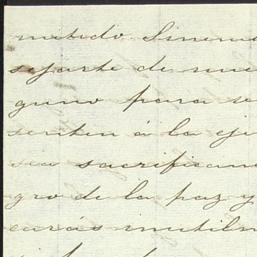 metido
sejarte de nue
guno para se
senten á la eje
sea sacrifican
gro de la paz y
carás inutilm